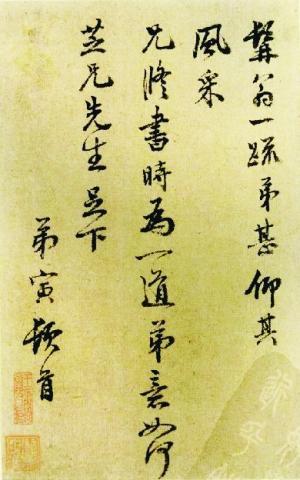 髯翁一疏弟甚仰其
風采
兄脩書時為一道弟意如何
芝兄先生足下
弟寅頓首